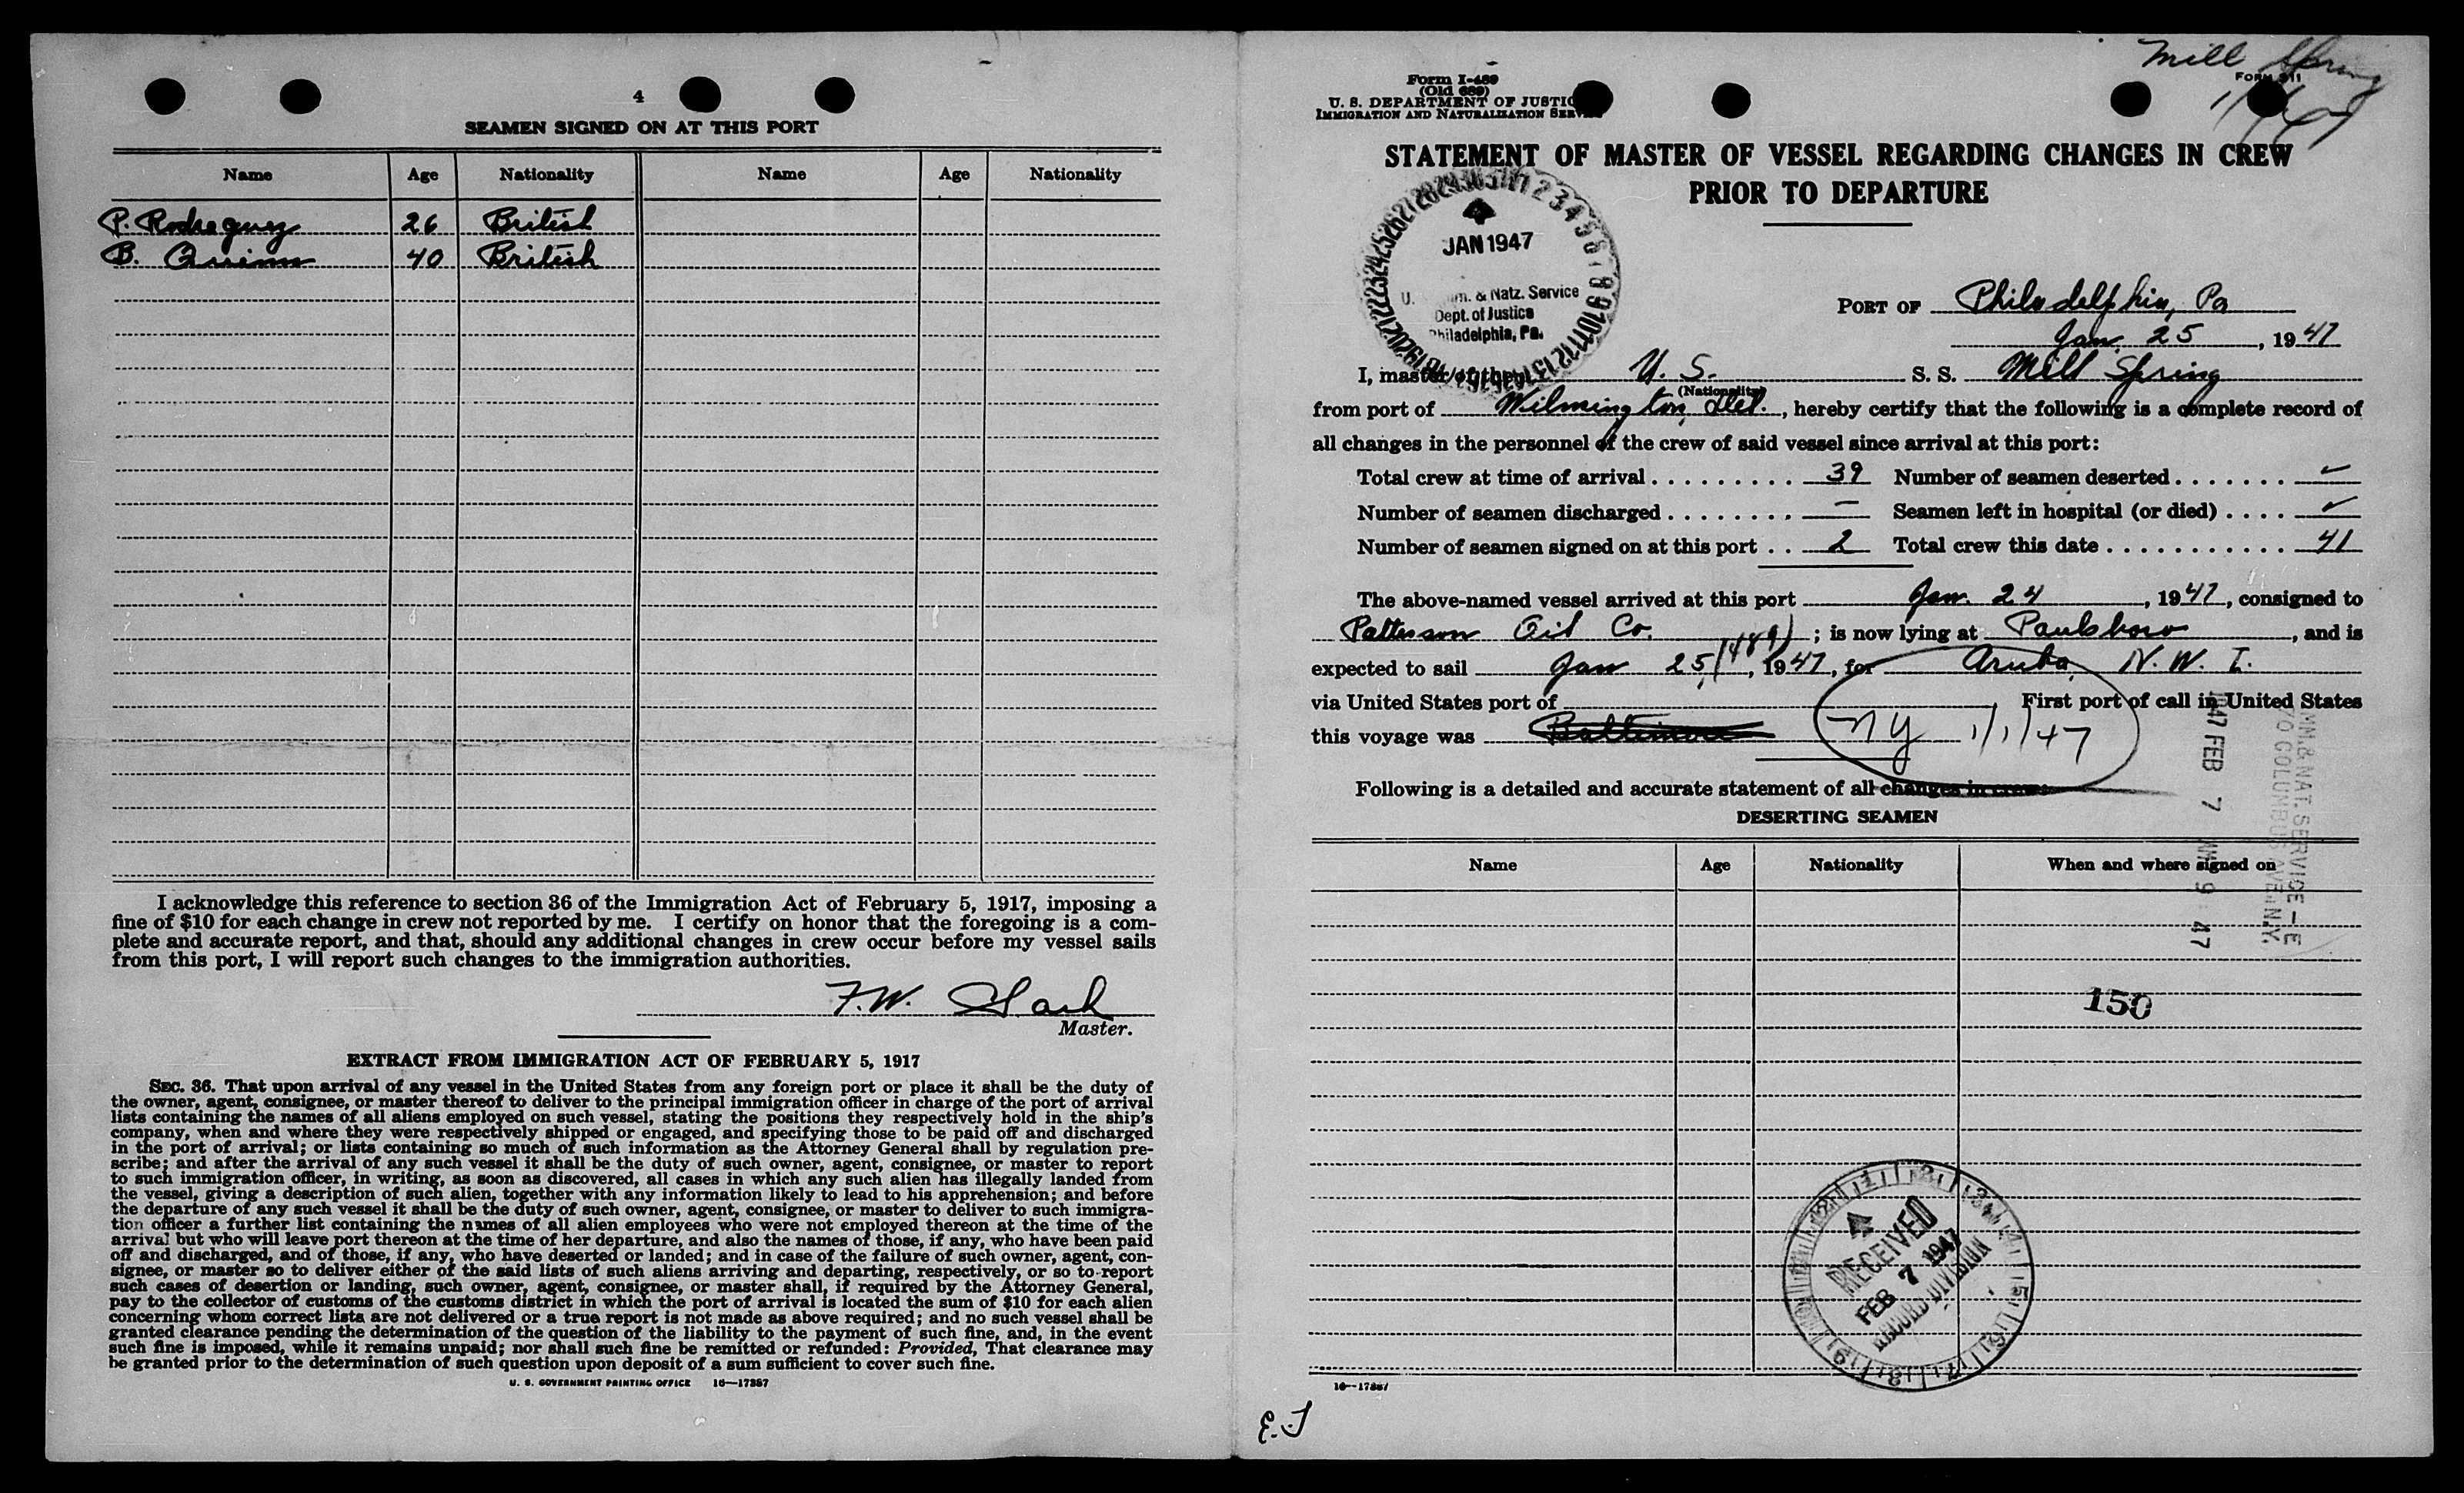 4
SEAMEN SIGNED ON AT THIS PORT
Name Age Nationality Name Age Nationality
P. Rodreguez 26 British
B. Quinn 40 British
I acknowledge this reference to section 36 of the Immigration Act of February 5, 1917, imposing a
fine of $10 for each change in crew not reported by me. I certify on honor that the foregoing is a com-
plete and accurate report, and that, should any additional changes in crew occur before my vessel sails
from this port, I will report such changes to the immigration authorities.
F. W.
Master.
EXTRACT FROM IMMIGRATION ACT OF FEBRUARY 5, 1917
SEC. 36. That upon arrival of any vessel in the United States from any foreign port or place it shall be the duty of
the owner, agent, consignee, or master thereof to deliver to the principal immigration officer in charge of the port of arrival
lists containing the names of all aliens employed on such vessel, stating the positions they respectively hold in the ship's
company, when and where they were respectively shipped or engaged, and specifying those to be paid off and discharged
in the port of arrival; or lists containing so much of such information as the Attorney General shall by regulation pre-
scribe; and after the arrival of any such vessel it shall be the duty of such owner, agent, consignee, or master to report
to such immigration officer, in writing, as soon as discovered, all cases in which any such alien has illegally landed from
the vessel, giving a description of such alien, together with any information likely to lead to his apprehension; and before
the departure of any such vessel it shall be the duty of such owner, agent, consignee, or master to deliver to such immigra-
tion officer a further list containing the names of all alien employees who were not employed thereon at the time of the
arrival but who will leave port thereon at the time of her departure, and also the names of those, if any, who have been paid
off and discharged, and of those, if any, who have deserted or landed; and in case of the failure of such owner, agent, con-
signee, or master so to deliver either of the said lists of such aliens arriving and departing, respectively, or so to report
such cases of desertion or landing, such owner, agent, consignee, or master shall, if required by the Attorney General,
pay to the collector of customs of the customs district in which the port of arrival is located the sum of $10 for each alien
concerning whom correct lists are not delivered or a true report is not made as above required; and no such vessel shall be
granted clearance pending the determination of the question of the liability to the payment of such fine, and, in the event
such fine is imposed, while it remains unpaid; nor shall such fine be remitted or refunded: Provided, That clearance may
be granted prior to the determination of such question upon deposit of a sum sufficient to cover such fine.
U. S. GOVERNMENT PRINTING OFFICE 16—17387
Mill Spring
Form I-489
(Old 689)
U. S. DEPARTMENT OF JUSTIC
IMMIGRATION AND NATURALIZATION SERV
STATEMENT OF MASTER OF VESSEL REGARDING CHANGES IN CREW
PRIOR TO DEPARTURE
JAN 1947
& Natz. Service
Dept. of Justice
Philadelphia, Pa.
PORT OF Philadelphia, Pa
Jan. 25, 1947
I, master of the U. S. S. S. Mill Spring
(Nationality)
from port of Wilmington, Del., hereby certify that the following is a complete record of
all changes in the personnel of the crew of said vessel since arrival at this port:
Total crew at time of arrival 39 Number of seamen deserted ✓
Number of seamen discharged — Seamen left in hospital (or died) ✓
Number of seamen signed on at this port 2 Total crew this date 41
The above-named vessel arrived at this port Jan. 24, 1947, consigned to
Patterson Oil Co. (489); is now lying at Paulsboro, and is
expected to sail Jan 25, 1947, for Aruba, N. W. I.
via United States port of First port of call in United States
this voyage was Baltimore NY 1/1/47
Following is a detailed and accurate statement of all changes in crew:
DESERTING SEAMEN
Name Age Nationality When and where signed on
IMM. & NAT. SERVICE — E
70 COLUMBUS AVE. N.Y.
1947 FEB 7 AM 9 47
150
RECEIVED
FEB 7 1947
RECORD DIVISION
16—17387
E. T